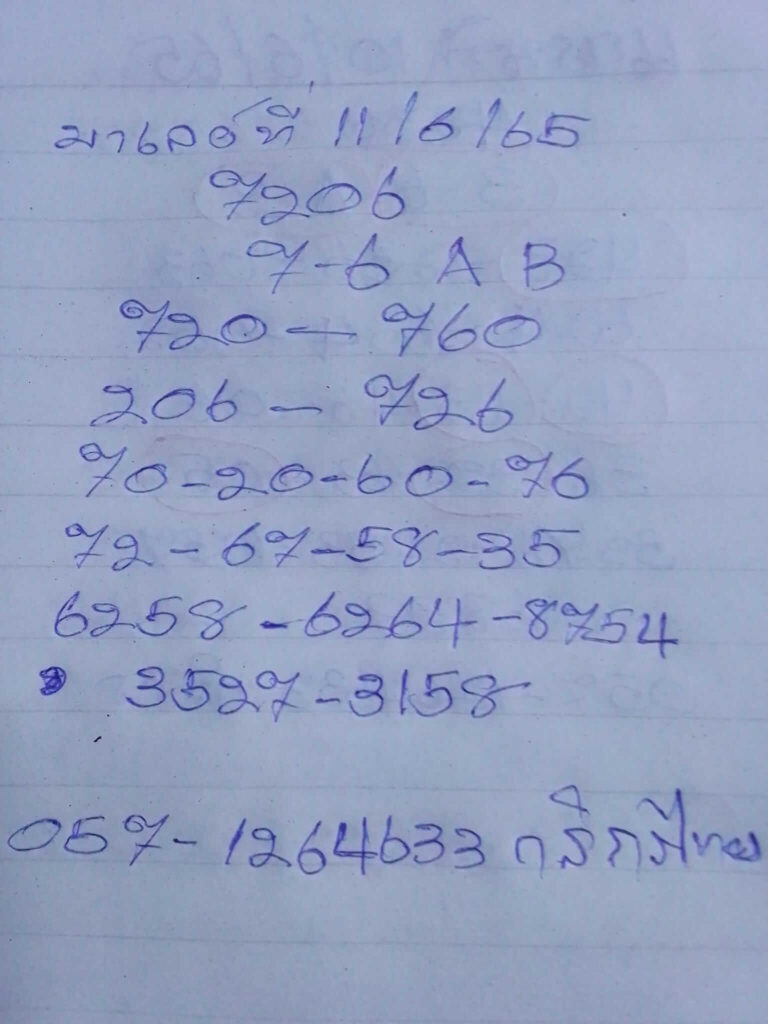 มาเลย์ที่ 11/6/65
7206
7-6 A B
720 — 760
206 — 726
70-20-60-76
72-67-58-35
6258-6264-8754
3527-3158
057-1264633 กสิกรไทย